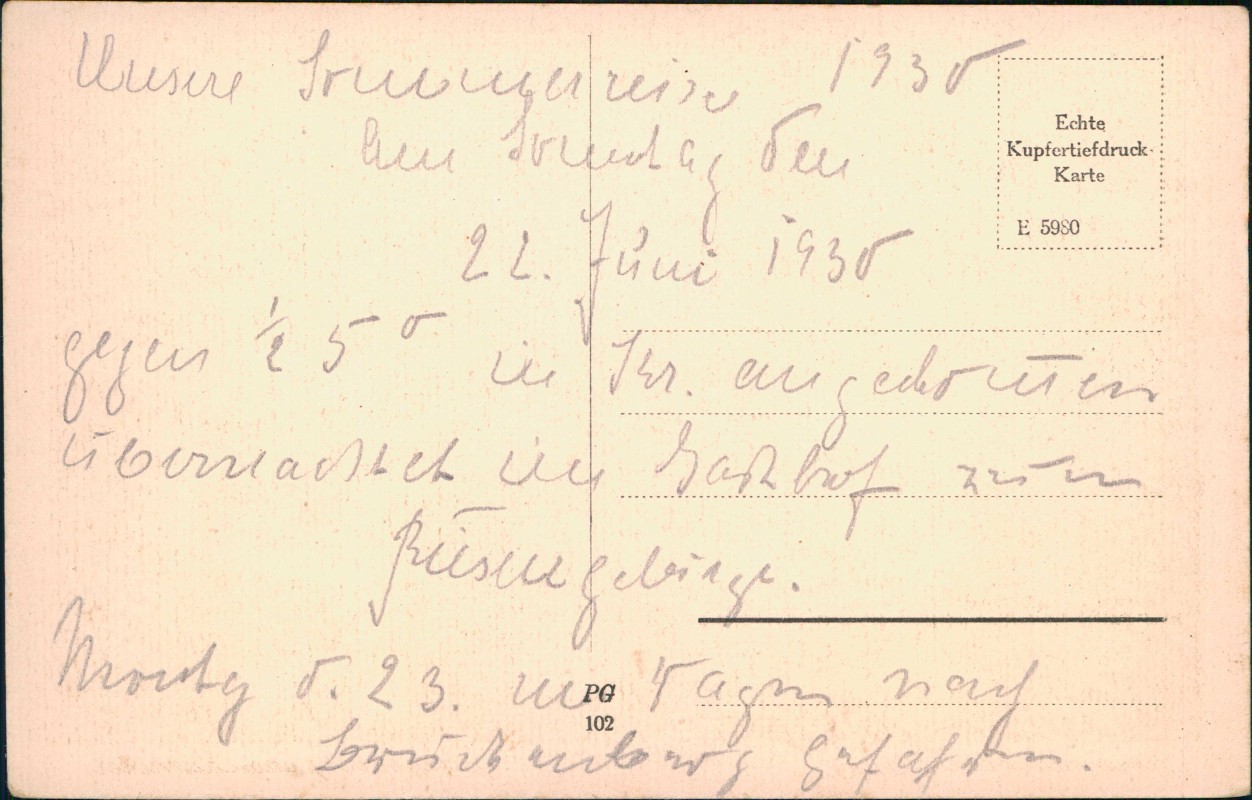 Unsere Sommerreise 1930
Am Sonntag den
22. Juni 1930
gegen ½ 5 in Kr. angekommen
übernachtet im Gasthof zum
Riesengebirge.
Montag d. 23. m. Wagen nach
Brückenberg gefahren.
Echte
Kupfertiefdruck-
Karte
E 5980
PG
102